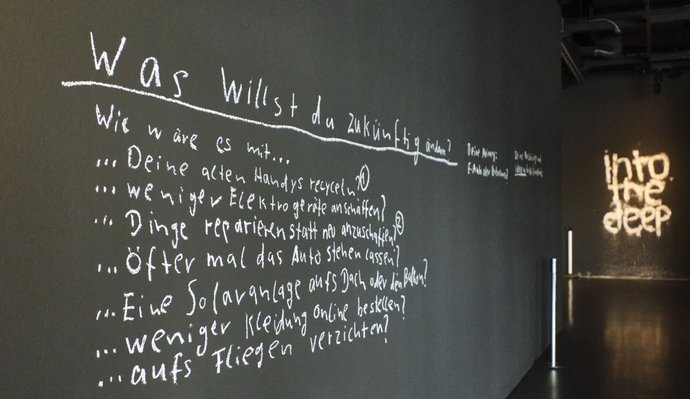 Was willst du zukünftig ändern?
Wie wäre es mit...
... Deine alten Handys recyceln? ①
... weniger Elektrogeräte anschaffen?
... Dinge reparieren statt neu anzuschaffen? ②
... Öfter mal das Auto stehen lassen?
... Eine Solaranlage aufs Dach oder den Balkon?
... weniger Kleidung online bestellen?
... aufs Fliegen verzichten?
Deine Meinung:
into
the
deep